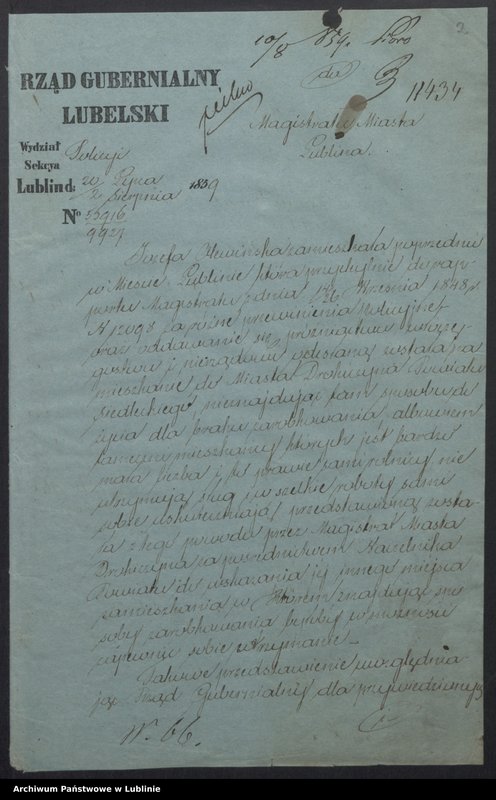 2
10/8 854. Pozo
do 3 11434
pilno
RZĄD GUBERNIALNY
LUBELSKI
Magistratu Miasta
Lublina.
Wydział Policyi
Sekcya
Lublin d: 20 Lipca / 2 Sierpnia 1859
No 55916
9927
Józefa zamieszkała poprzednio
w Mieście Lublinie która przychylnie do rap-
portu Magistratu z dnia Września 1848 r.
N 12098 za różne przewinienia Policyjne
oraz oddawanie się próżniactwu włóczę-
gostwu i nierządowi odesłaną została na
mieszkanie do Miasta Drohiczyna Powiatu
Siedleckiego, nieznajdując tam sposobu do
życia dla braku zarobkowania, albowiem
tameczni mieszkańcy których jest bardzo
mała liczba i to prawie sami rolnicy nie
utrzymują sług i wszelkie roboty sami
sobie uskuteczniają, przedstawioną zosta-
ła z tego powodu przez Magistrat Miasta
Drohiczyna za pośrednictwem Naczelnika
Powiatu do wskazania jej innego miejsca
zamieszkania w którem znajdując spo-
soby zarobkowania byłaby w możności
zapewnić sobie utrzymanie.
Takowe przedstawienie uwzględnia-
jąc Rząd Gubernialny dla przywiedzionych
W. 66.
Archiwum Państwowe w Lublinie